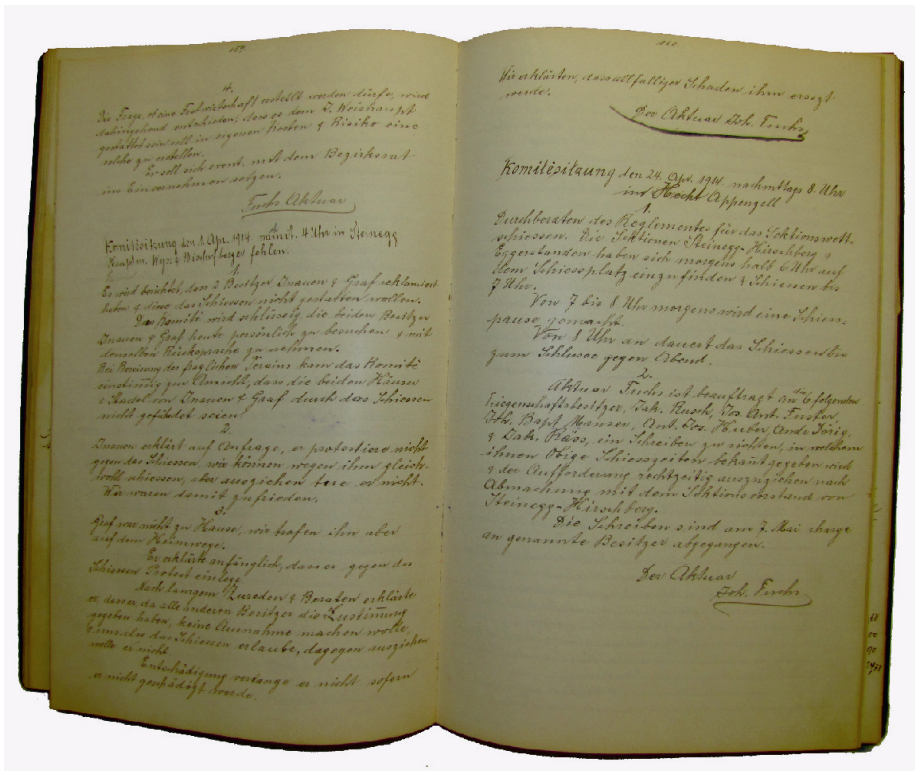 159.
4.
Die Frage, ob eine Festwirtschaft erstellt werden dürfe, wird
dahingehend entschieden, dass es dem Z. Weishaupt
gestattet sein soll in eigenen Kosten & Risiko eine
solche zu erstellen.
Er soll sich event. mit dem Bezirksrat
ins Einvernehmen setzen.
Fuchs Aktuar
Komitésitzung den 1. Apr. 1914. 4 Uhr in Steinegg
Hauptm. Wyss & fehlen.
1.
Es wird berichtet, dass 2 Besitzer Inauen & Graf reklamiert
haben & diese das Schiessen nicht gestatten wollen.
Das Komité wird schlüssig die beiden Besitzer
Inauen & Graf heute persönlich zu besuchen & mit
denselben Rücksprache zu nehmen.
Bei Besehung des fraglichen Terains kam das Komité
einstimmig zur Ansicht, dass die beiden Häuser
& Gadel von Inauen & Graf durch das Schiessen
nicht gefährdet seien.
2.
Inauen erklärt auf Anfrage, er protestiere nicht
gegen das Schiessen, wir können wegen ihm gleich-
wohl schiessen, aber ausziehen tue er nicht.
Wir waren damit zufrieden.
3.
Graf war nicht zu Hause, wir trafen ihn aber
auf dem Heimwege.
Er erklärte anfänglich, dass er gegen das
Schiessen Protest einlege.
Nach langem Zureden & Beraten erklärte
er, dass er, da alle anderen Besitzer die Zustimmung
gegeben haben, keine Ausnahme machen wolle,
& uns also das Schiessen erlaube, dagegen ausziehen
wolle er nicht.
Entschädigung verlange er nicht sofern
er nicht geschädigt werde.
160.
Wir erklärten, dass allfälliger Schaden ihm ersezt
werde.
Der Aktuar Joh. Fuchs
Komitésitzung den 24. Apr. 1914. nachmittags 8. Uhr
im Hecht Appenzell
1.
Durchberaten des Reglementes für das Sektionswett-
schiessen. Die Sektionen Steinegg-Hirschberg &
Eggerstanden haben sich morgens halb 6 Uhr auf
dem Schiessplatz einzufinden & Schiessen bis
7 Uhr.
Von 7 bis 8 Uhr morgens wird eine Schiess-
pause gemacht.
Von 8 Uhr an dauert das Schiessen bis
zum Schlusse gegen Abend.
2.
Aktuar Fuchs ist beauftragt an die folgenden
Liegenschaftsbesitzer, Jak. Rusch, Jos. Ant. Fuster,
Joh. Bapt. Manser, Ant. Jos. Huber, Andr. Dörig,
& Jak. Räss, ein Schreiben zu richten, in welchem
ihnen obige Schiesszeiten bekannt gegeben wird
& der Aufforderung rechtzeitig auszuziehen nach
Abmachung mit dem Sektionsvorstand von
Steinegg-Hirschberg.
Die Schreiben sind am 7. Mai charge
an genannte Besitzer abgegangen.
Der Aktuar
Joh. Fuchs